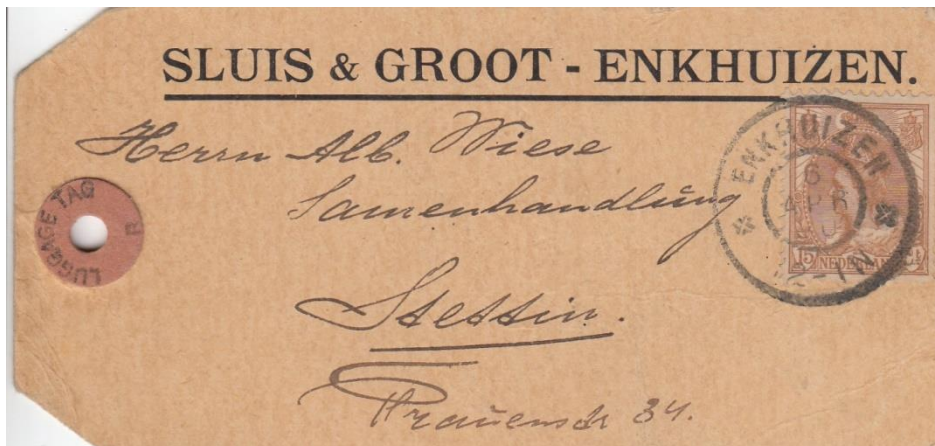 SLUIS & GROOT - ENKHUIZEN.
Herrn Alb. Wiese
Samenhandlung
Stettin.
Frauenstr 34.
LUGGAGE TAG
R
ENKHUIZEN
6
15 NEDERLAND